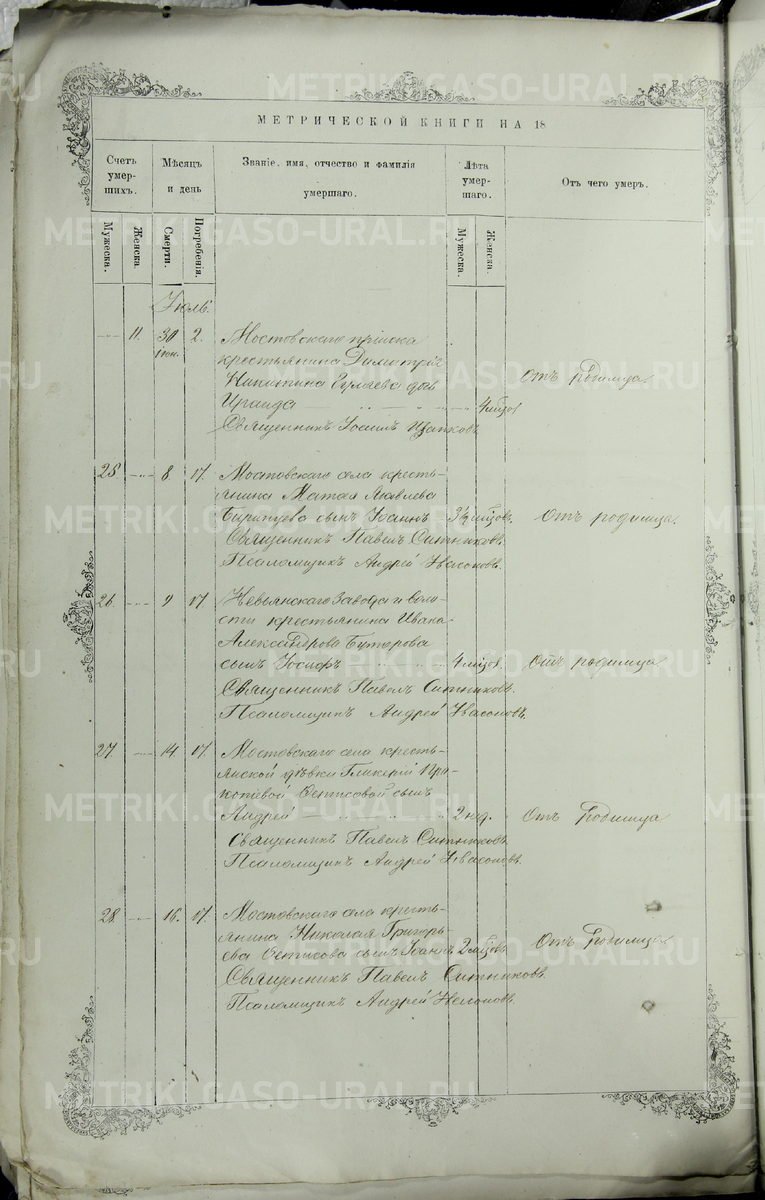 МЕТРИЧЕСКОЙ КНИГИ НА 18
Счетъ умер- шихъ.
Мѣсяцъ и день
Званіе, имя, отчество и фамилія умершаго.
Лѣта умер- шаго.
Отъ чего умеръ.
Мужеска. Женска. Смерти. Погребенія. Мужеска. Женска.
Іюль.
11. 30 2. Мостовскаго пріиска
іюн. крестьянина Димитрія
Никитина Гуляева дочь
Ираида 4 мѣсяц. Отъ родимца
Священникъ
25 8 17. Мостовскаго села кресть-
янина Матѳея Яковлева
сынъ Іоаннъ 3½ мѣсяцовъ. Отъ родимца.
Священникъ Павелъ Ситниковъ.
Псаломщикъ Андрей
26. 9 17 Невьянскаго Завода и воло-
сти крестьянина Ивана
Александрова Буторова
сынъ Іосифъ 4 мѣсяцов. Отъ родимца
Священникъ Павелъ Ситниковъ.
Псаломщикъ Андрей
27 14. 17. Мостовскаго села кресть-
янской дѣвки Гликеріи Про-
копьевой Фетисовой сынъ
Андрей 2 нед. Отъ Родимца
Священникъ Павелъ Ситниковъ.
Псаломщикъ Андрей
28. 16. 17. Мостовскаго села кресть-
янина Николая Григорь-
ева Фетисова сынъ Іоаннъ 2 мѣсяцовъ. Отъ Родимца
Священникъ Павелъ Ситниковъ.
Псаломщикъ Андрей
METRIKI.GASO-URAL.RU